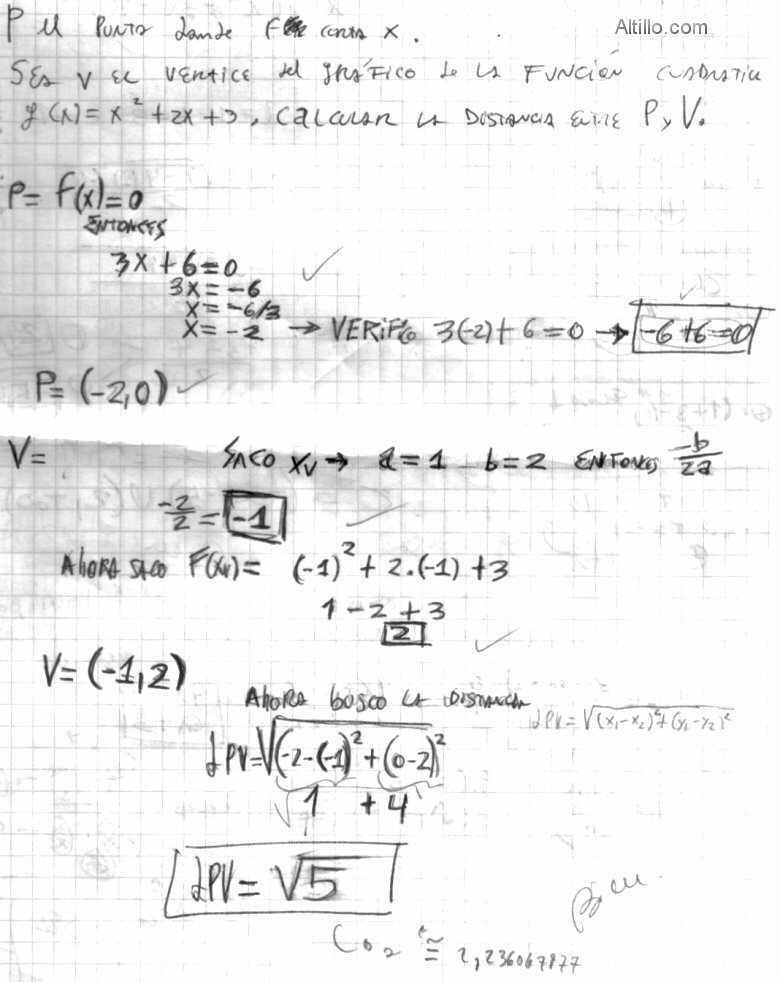 Altillo.com
P el punto donde F corta x.
SEA V EL VERTICE del GRÁFICO de LA FUNCIÓN CUADRATICA
g(x)=x²+2x+3, CALCULAR LA DISTANCIA ENTRE P y V.
P= F(x)=0
ENTONCES
3x+6=0
3x=-6
x=-6/3
x=-2 → VERIFICO 3(-2)+6=0 → -6+6=0
P=(-2,0)
V= SACO Xv → a=1 b=2 ENTONCES -b/2a
-2/2=-1
AhORA SACO F(Xv)= (-1)²+2.(-1)+3
1-2+3
2
V=(-1,2)
AhORA busco LA DISTANCIA dPV=√(x₁-x₂)²+(y₁-y₂)²
dPV=√(-2-(-1)²+(0-2)²
√1+4
dPV=√5
≅ 2,236067977